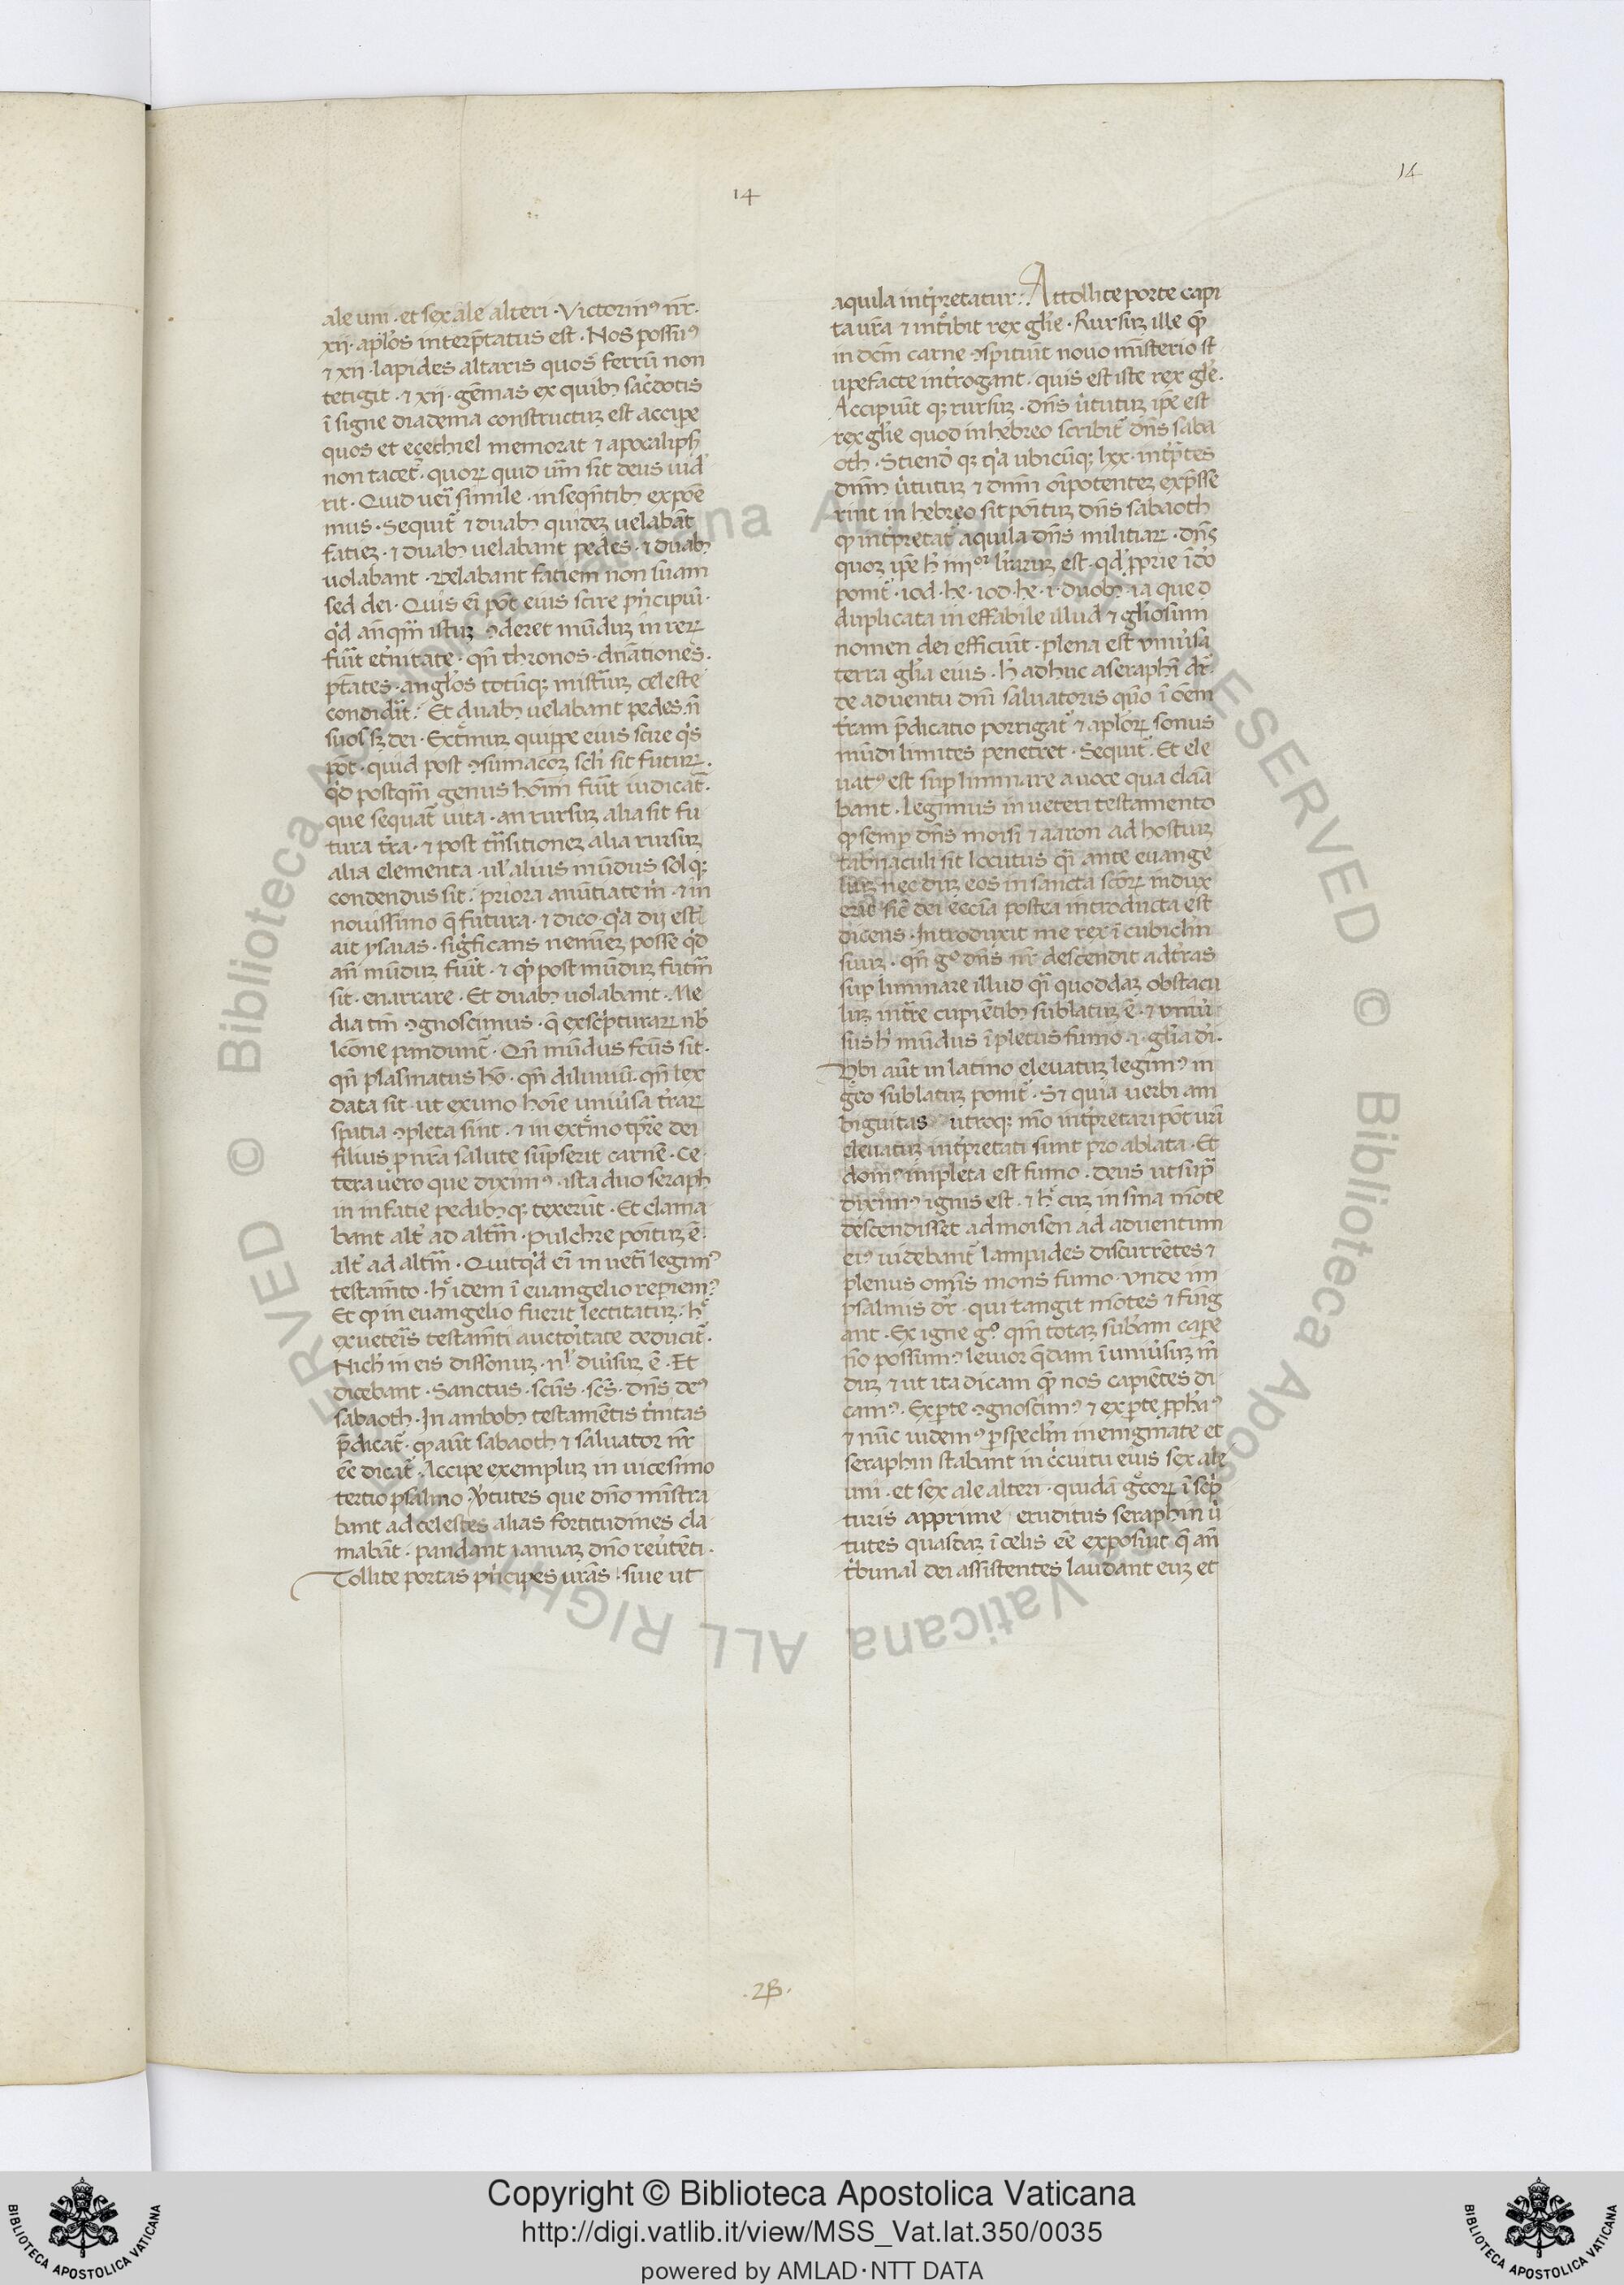 14
14
ale uni · et sex ale alteri · Victorin⁹ nr̄ ·
xij · apl̓os interp̄tatus est · Nos possum⁹
⁊ xij · lapides altaris quos ferrū non
tetigit · ⁊ xij · gēmas ex quibꝫ sac̓dotis
ī signe diadema constructuꝫ est accipe
quos et eçechiel memorat ⁊ apocalipsꝭ
non tacet᷑ · quoꝝ quid uꝝ sit deus uid̓
rit · Quid ueri simile · in seqn̄tibꝫ expōe
mus · Sequit᷑ ⁊ duabꝫ quideꝫ uelabāt
fatieꝫ · ⁊ duabꝫ uelabant pedes · ⁊ duabꝫ
uolabant · Velabant fatiem non suam
sed dei · Quis eī pōt eius scire pn̓cipiū ·
qd̓ an̄qm̄ istuꝫ ꝯderet mūduꝫ in reꝝ
fuīt et̓nitate · qn̄ thronos · dn̄ationes ·
pt̄ates · angl̓os totūqꝫ mist̓iuꝫ celeste
condid̓it · Et duabꝫ uelabant pedes · n̄
suos sꝫ dei · Ext̓muꝫ quippe eius scire qs̓
pōt · quid post ꝯsumac̄oꝫ scl̓i sit futuꝝ ·
qd̓ postqm̄ genus hoīm fuīt iudicat᷑ ·
que sequat᷑ uita · an rursuꝫ alia sit fu
tura tr̓a · ⁊ post trn̄sitioneꝫ alia rursuꝫ
alia elementa · ul̓ alius mūdus sol qꝫ
condendus sit · priora anūtiate m̓ · ⁊ in
nouissimo q̄ futura · ⁊ dico · qa̓ dij estꝭ
ait ysaias · sig̓ficans nemīeꝫ posse qd̓
an̄ mūduꝫ fuīt · ⁊ qp̓ post mūduꝫ futuꝝ
sit · enarrare · Et duabꝫ uolabant · Me
dia tm̄ ꝯgnoscimus · q̄ ex sc̓pturaꝝ nb̓
lc̄one panduntᷣ · Qn̄ mūdus fc̄us sit ·
qn̄ plasmatus hō · qn̄ diluuiū · qn̄ lex
data sit · ut ex uno hoīe uniu̓sa tr̓aꝝ
spatia ꝯpleta sint · ⁊ in ext̓mo tp̄re dei
filius ꝓ nrā salute sūpserit carnē · Ce
tera uero que diximꝰ · ista duo seraph
in in fatie pedibꝫ qꝫ texerūt · Et clama
bant alt̓ ad alt̓m · Pulchre poītuꝫ ē ·
alt̓ ad alt̓m · Quitqd̓ eī in uet̓i legimꝰ
testamīto · hͦ idem ī euangelio repiemꝰ
Et qp̓ in euangelio fuerit lectitatuꝫ · hͦ
ex uet̓eis testamīti auctoītate deducit᷑ ·
Nich̓ in eis dissonuꝫ · nl̓ diu̓suꝫ ē · Et
dicebant · Sanctus · scūs · scs̄ · dn̄s deꝰ
sabaoth · In ambobꝫ testamētis t̓nitas
p̄dicat᷑ · qp̓ aūt sabaoth ⁊ saluator nr̄
eē dicat᷑ · Accipe exempluꝫ in uicesimo
tertio psalmo · Vt̓tutes que dn̄o mīstra
bant ad celestes alias fortitudines cla
mabāt · pandant ianuaꝫ dn̄o reu̓tēti ·
Tollite portas pn̓cipes urās · siue ut
aquila int̓pretatur : · Attollite porte capi
ta urā ⁊ int̓bit rex gl̓ie · Rursuꝫ ille qp̓
in dēm carne ꝯspitiūt nouo mīsterio st
upefacte int̓rogant · quis est iste rex gl̓e ·
Accipiūt qꝫ rursuꝫ · dn̄s u̓tutuꝫ ip̄e est
rex gl̓ie quod in hebreo scribit᷑ dn̄s saba
oth · Sciend̓ qꝫ qa̓ ubicūqꝫ lxx · int̓ptes
dnm̄ u̓tutuꝫ ⁊ dnm̄ oīpotenteꝫ exp̄sse
rint in hebreo sit poītuꝫ dn̄s sabaoth
qp̓ int̓pretat᷑ aquila dn̄s militiaꝝ · dn̄s
quoꝫ ip̄e h̓ iiiiᵒʳ lr̄aruꝫ est · qd̓ ꝓprie ī dō
ponit᷑ · iod · he · iod · he · i · duobꝫ · ia que
duplicata in effabile illud ⁊ gl̓iosum
nomen dei efficiūt · plena est uniu̓sa
terra gl̓ia eius · h̓ adhuc a seraphī dr̄ ·
de aduentu dnī saluatoris quō ī oēm
tr̓am p̄dicatio porrigat᷑ ⁊ aplōꝝ sonus
mūdi limites penetret · Sequit᷑ · Et ele
uatꝰ est sup liminare a uoce qua clāa
bant · Legimus in ueteri testamento
qp̓ semp dn̄s moisi ⁊ aaron ad hostiuꝫ
tab̓naculi sit locutus qi̓ ante euange
liuꝫ nec duꝫ eos in sancta scōꝝ indux
erat sic̄ dei eccīa postea introducta est
dicens · Introduxit me rex ī cubiclm̄
suuꝫ · qn̄ gͦ dn̄s nr̄ descendit ad tr̓as
sup liminare illud qi̓ quoddaꝫ obstacu
luꝫ int̓re cupiētibꝫ sublatuꝫ ē · ⁊ uniu̓
sus h̓ mūdus ī pletus fumo · ⁊ gl̓ia dī ·
Vbi aūt in latino eleuatuꝫ legimꝰ in
gͨco sublatuꝫ ponit᷑ · Sꝫ quia uerbi am
biguitas utroqꝫ mō int̓pretari pōt urī
eleuatuꝫ int̓pretati sunt pro ablata · Et
domꝰ impleta est fumo · Deus ut supͣ
diximꝰ ignis est · ⁊ hͨ cuꝫ in sina mōte
descendisset ad moisen ad aduentum
eiꝰ uidebant᷑ lampades discurrētes ⁊
plenus omīs mons fumo · Vnde in
psalmis dr̄ · qui tangit mōtes ⁊ fūig
ant · Ex igne gͦ qm̄ totaꝫ subām cape
nō possumꝰ leuior q̄dam ī uniu̓suꝫ m̄
duꝫ ⁊ ut ita dicam qp̓ nos capiētes di
camꝰ · Ex pte ꝯgnoscimꝰ ⁊ ex pte ꝓph̓aꝰ
⁊ nūc uidemꝰ p speclm̄ in enigmate et
seraphin stabant in cc̓uitu eius sex ale
uni · et sex ale alteri · quidā gͨcoꝝ ī scp̓
turis apprime eruditus seraphin u̓
tutes quasdaꝫ ī celis eē exposuit q̄ an̄
tb̓unal dei assistentes laudant euꝫ et
Copyright © Biblioteca Apostolica Vaticana
http://digi.vatlib.it/view/MSS_Vat.lat.350/0035
powered by AMLAD·NTT DATA